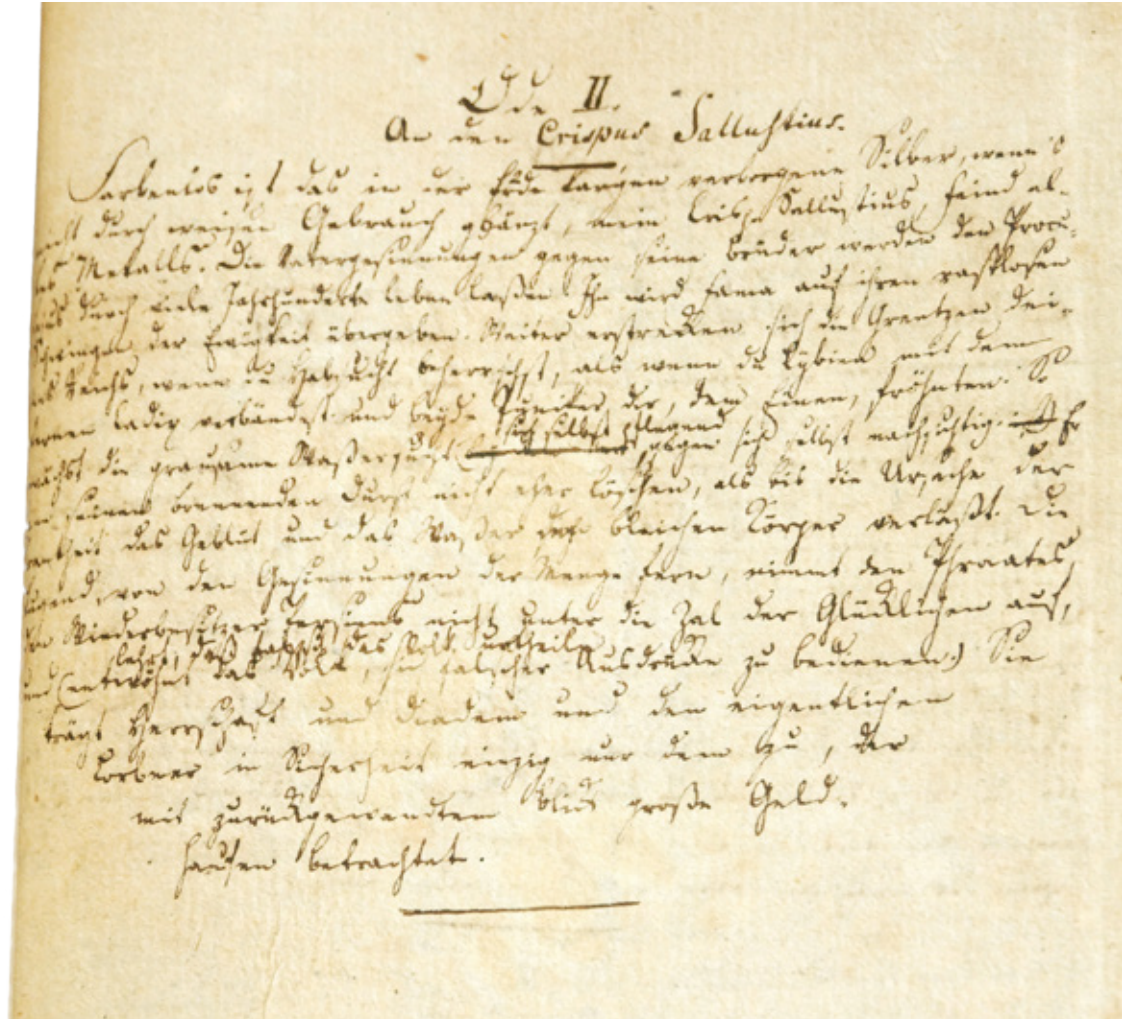 Ode II.
An den Crispus Sallustius.
Farbenlos ist das in der Erde kargen verborgene Silber, wenn's
nicht durch weisen Gebrauch glänzt, mein Crisp Sallustius, Feind al-
les Metalls. Die Vatergesinnungen gegen seine Brüder werden den Procu-
lejus durch viele Jahrhunderte leben laßen. Ihn wird Fama auf ihren rastlosen
Schwingen der Ewigkeit übergeben. Weiter erstrecken sich die Grentzen dei-
nes Reichs, wenn du Habsucht beherrschst, als wenn du Lybien mit dem
fernen Cadix verbändest und beyde Punier dir, dem Einen, fröhnten. So
sich selbst pflegend
wächst die grausame Waßersucht gegen sich selbst nachsichtig. Er
seinen brennenden Durst nicht eher löschen, als bis die Ursache der
Krankheit das Geblüt und das Waßer den bleichen Körper verläßt. Die
Tugend, von den Gesinnungen der Menge fern, nimmt den Phraates,
den Wiederbesitzer Persiens nicht unter die Zal der Glücklichen auf,
lehrt, das Volk urtheile
und (entwöhnt das Volk, sich falscher Ausdrücke zu bedienen.) Sie
trägt Herrschaft und Diadem und den eigentlichen
Lorbeer in Sicherheit einzig nur dem zu, der
mit zurückgewandtem Blick große Geld-
haufen betrachtet.